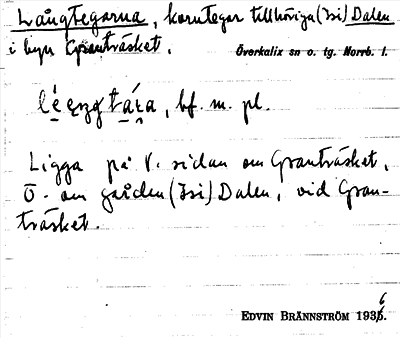 Långtegarna, korntegar tillhöriga (3si) Dalen
i byn Granträsket.
Överkalix sn o. tg. Norrb. l.
bf. m. pl.
Ligga på V. sidan om Granträsket,
Ö. om gården (3si) Dalen, vid Gran-
träsket.
EDVIN BRÄNNSTRÖM 1936.